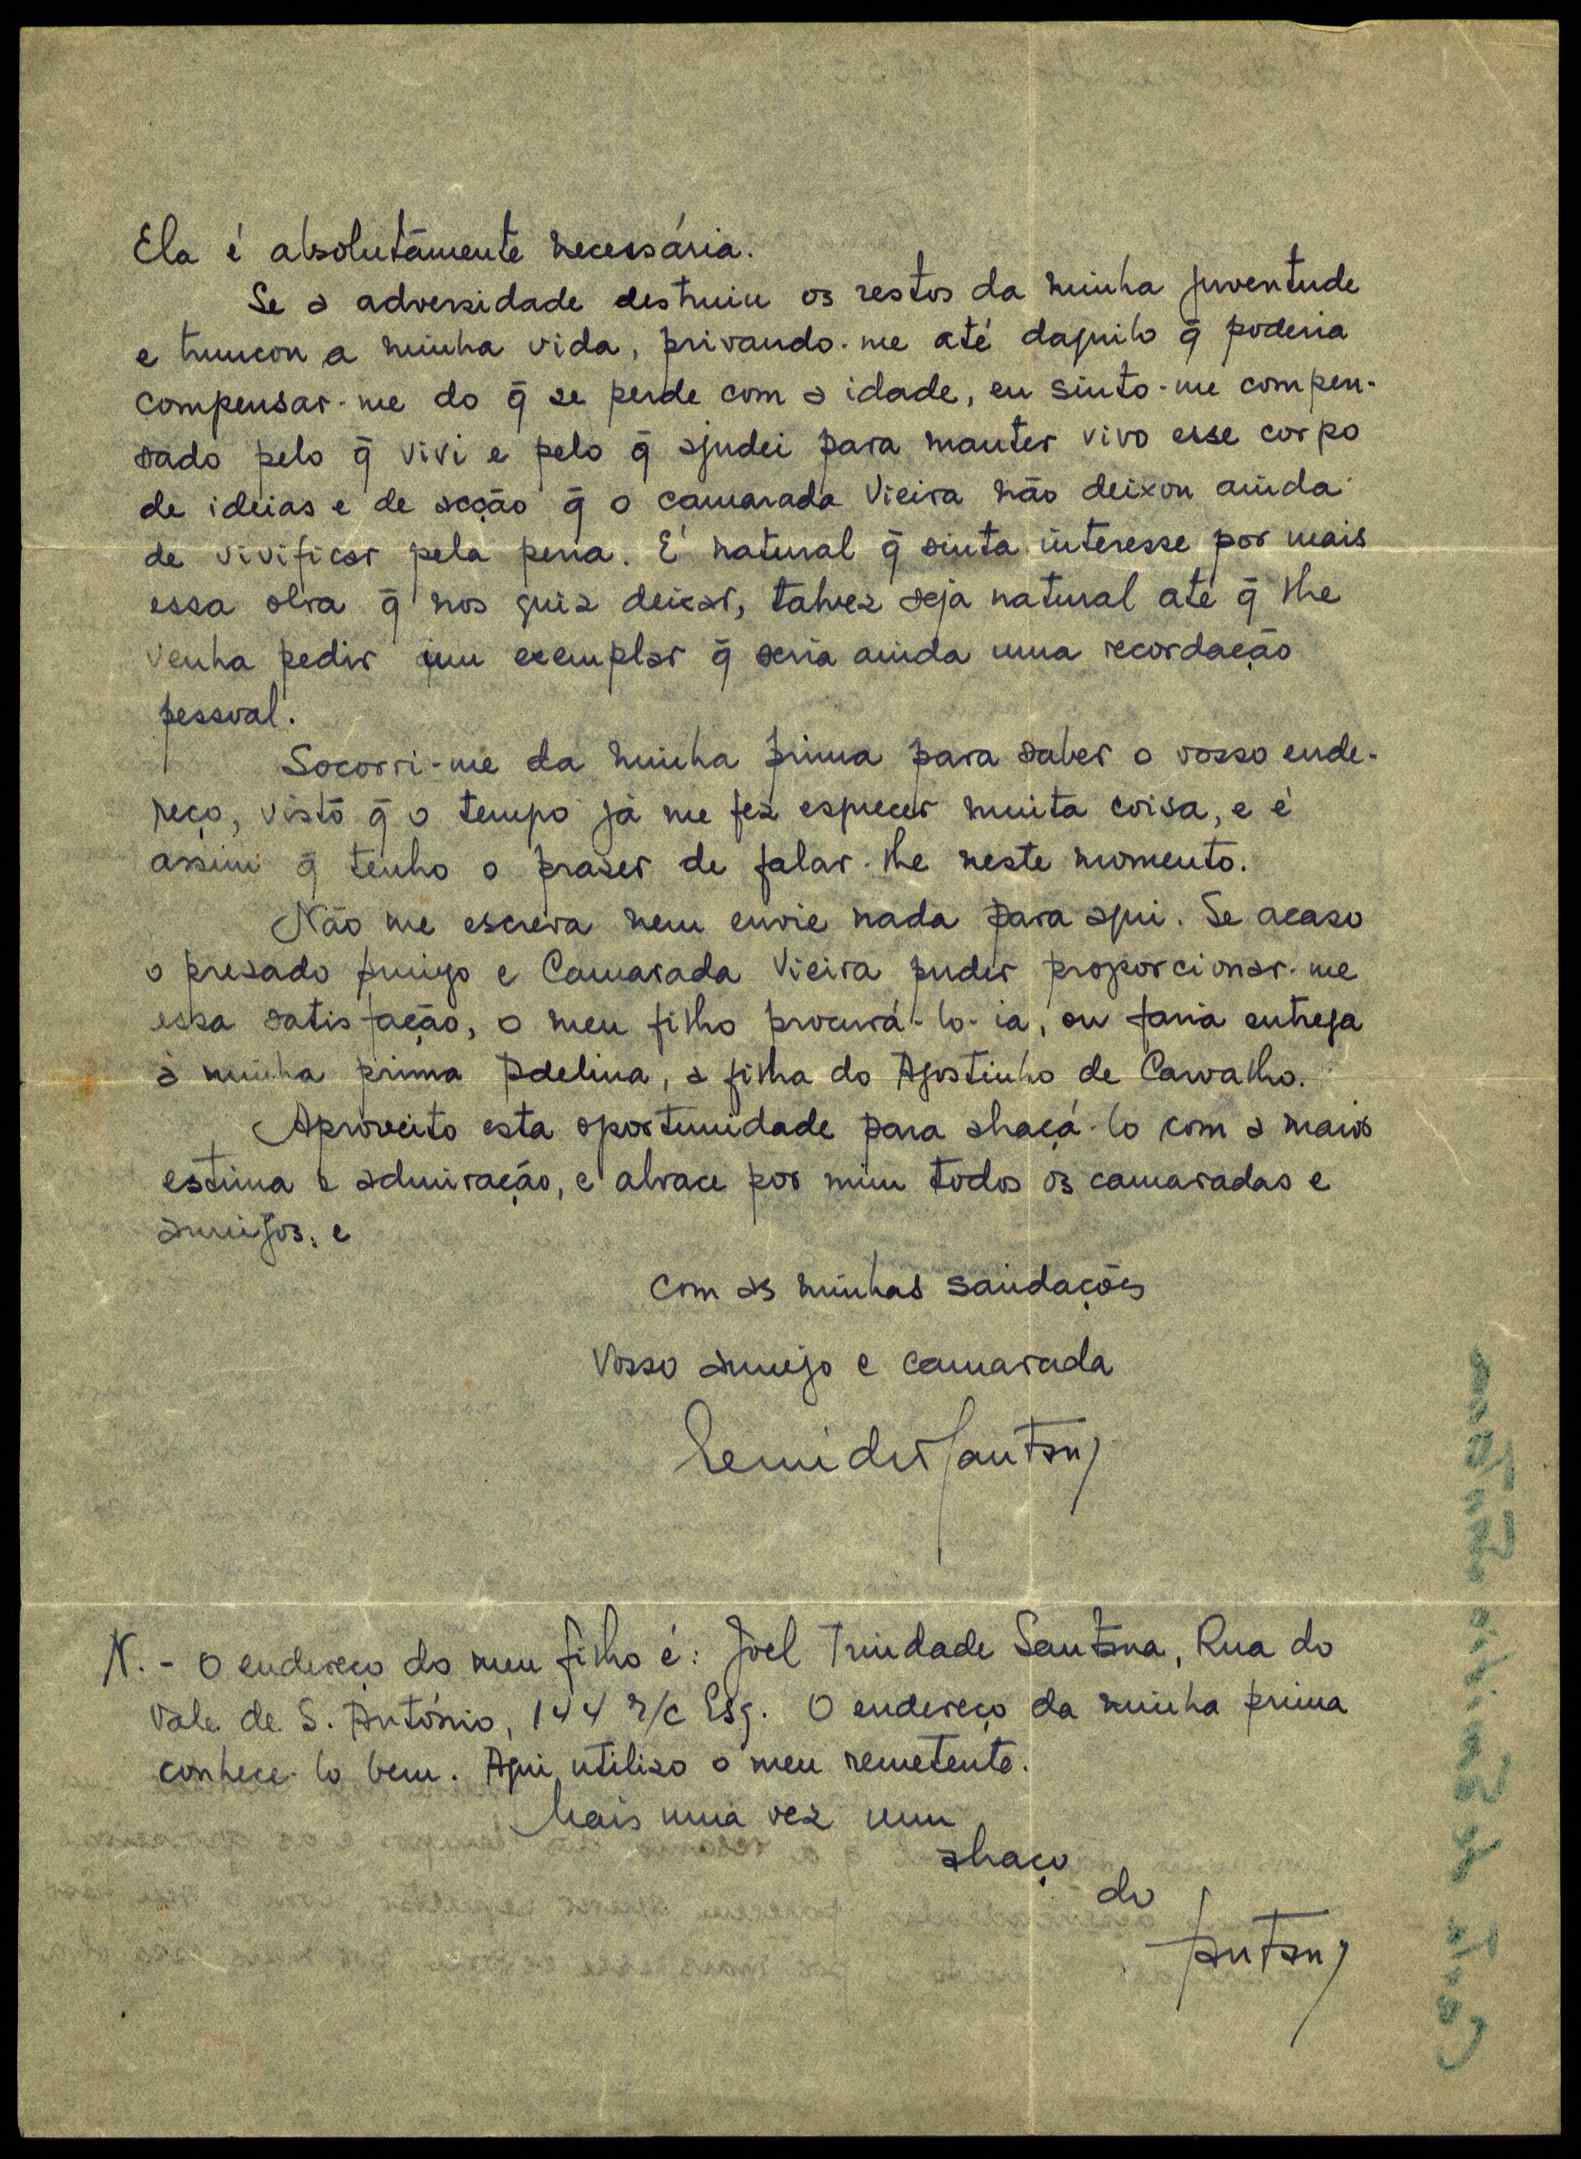 Ela é absolutãmente necessária.
Se a adversidade destruiu os restos da minha juventude
e truncou a minha vida, privando-me até daquilo q̃ poderia
compensar-me do q̃ se perde com a idade, eu sinto-me compen-
sado pelo q̃ vivi e pelo q̃ ajudei para manter vivo esse corpo
de ideias e de acção q̃ o camarada Vieira não deixou ainda
de vivificar pela pena. É natural q̃ sinta interesse por mais
essa obra q̃ nos quiz deixar, talvez seja natural até q̃ lhe
venha pedir um exemplar q̃ seria ainda uma recordação
pessoal.
Socorri-me da minha prima para saber o vosso ende-
reço, visto q̃ o tempo já me fez esquecer muita coisa, e é
assim q̃ tenho o praser de falar-lhe neste momento.
Não me escreva nem envie nada para aqui. Se acaso
o presado Amigo e Camarada Vieira puder proporcionar-me
essa satisfação, o meu filho procurá-lo-ia, ou faria entrega
à minha prima Adelina, a filha do Agostinho de Carvalho.
Aproveito esta oportunidade para abraçá-lo com a maior
estima e admiração, e abrace por mim todos os camaradas e
amigos, e
com as minhas saudações
Vosso amigo e camarada
Santana
N. - O endereço do meu filho é: Joel Trindade Santana, Rua do
Vale de S. António, 144 r/c Esq. O endereço da minha prima
conhece-lo bem. Aqui utiliso o meu remetente.
Mais uma vez um
abraço
do
Santana